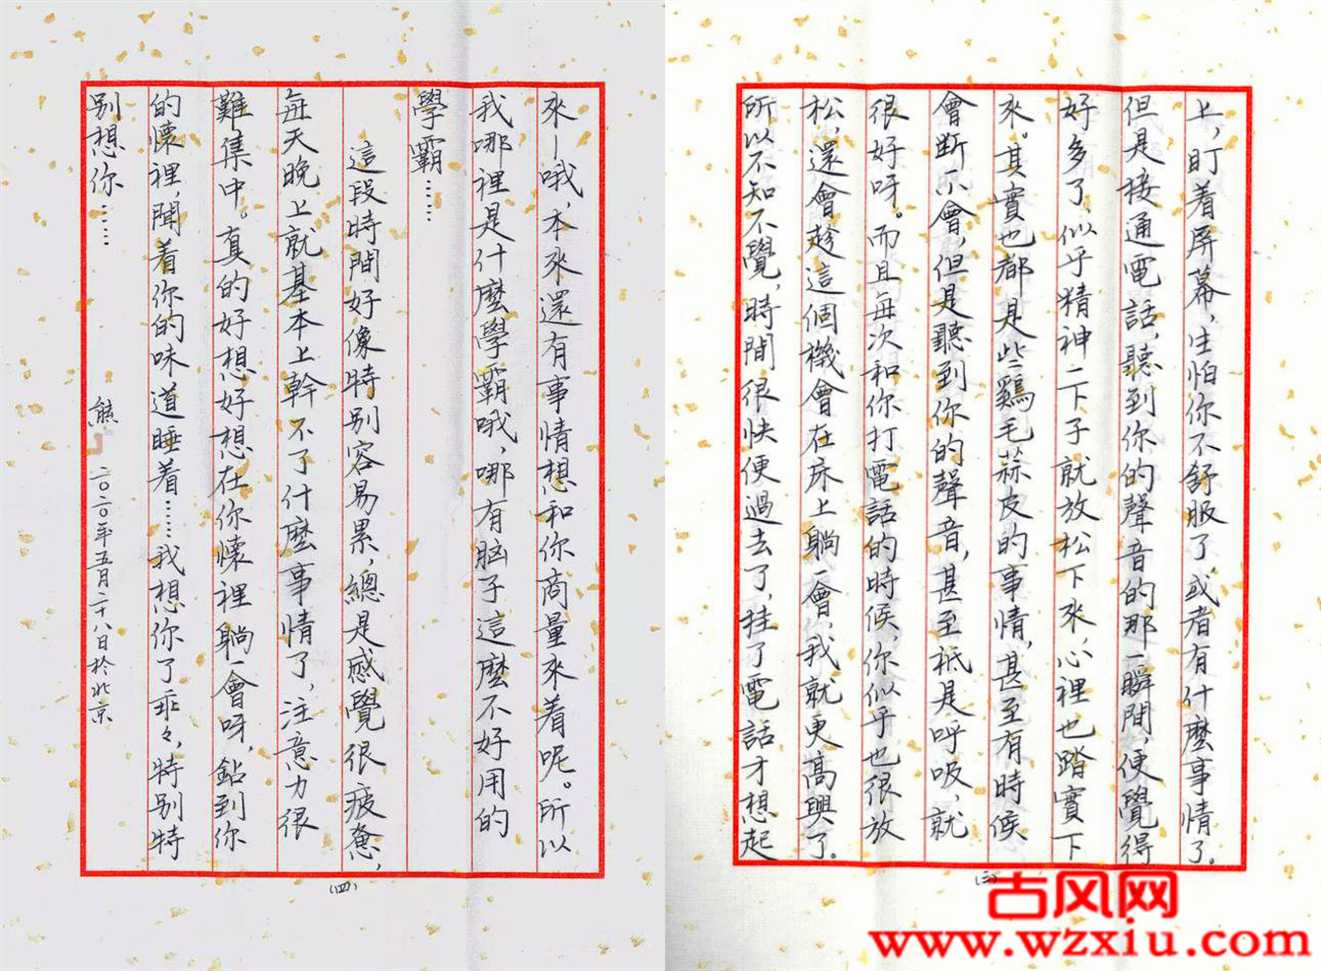 上，盯着屏幕，生怕你不舒服了或者有什麼事情了。
但是接通電話，聽到你的聲音的那一瞬間，便覺得
好多了，似乎精神一下子就放松下來，心裡也踏實下
來。其實也都是些鷄毛蒜皮的事情，甚至有時候
會斷不會，但是聽到你的聲音，甚至衹是呼吸，就
很好呀。而且每次和你打電話的時候，你似乎也很放
松，還會趁這個機會在床上躺一會，我就更高興了。
所以不知不覺，時間很快便過去了，挂了電話才想起
(三)
來—哦，本來還有事情想和你商量來着呢。所以
我哪裡是什麼學霸哦，哪有脑子這麽不好用的
學霸……
這段時間好像特别容易累，總是感覺很疲憊，
每天晚上就基本上幹不了什麽事情了，注意力很
難集中。真的好想好想在你懷裡躺一會呀，鉆到你
的懷裡，聞着你的味道睡着……我想你了乖々，特别特
别想你……
熊
二〇二〇年五月二十八日於北京
(四)
古风网
www.wzxiu.com